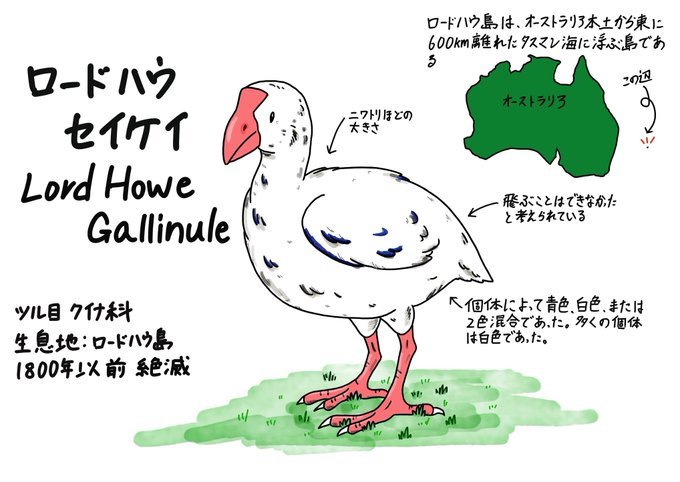 ロードハウ
セイケイ
Lord Howe
Gallinule
ツル目 クイナ科
生息地:ロードハウ島
1800年以前 絶滅
ニワトリほどの
大きさ
ロードハウ島は、オーストラリア本土から東に
600km離れたタスマン海に浮ぶ島であ
る
オーストラリア
この辺
飛ぶことはできなかた
と考えられている
個体によって青色、白色、または
2色混合であった。多くの個体
は白色であった。